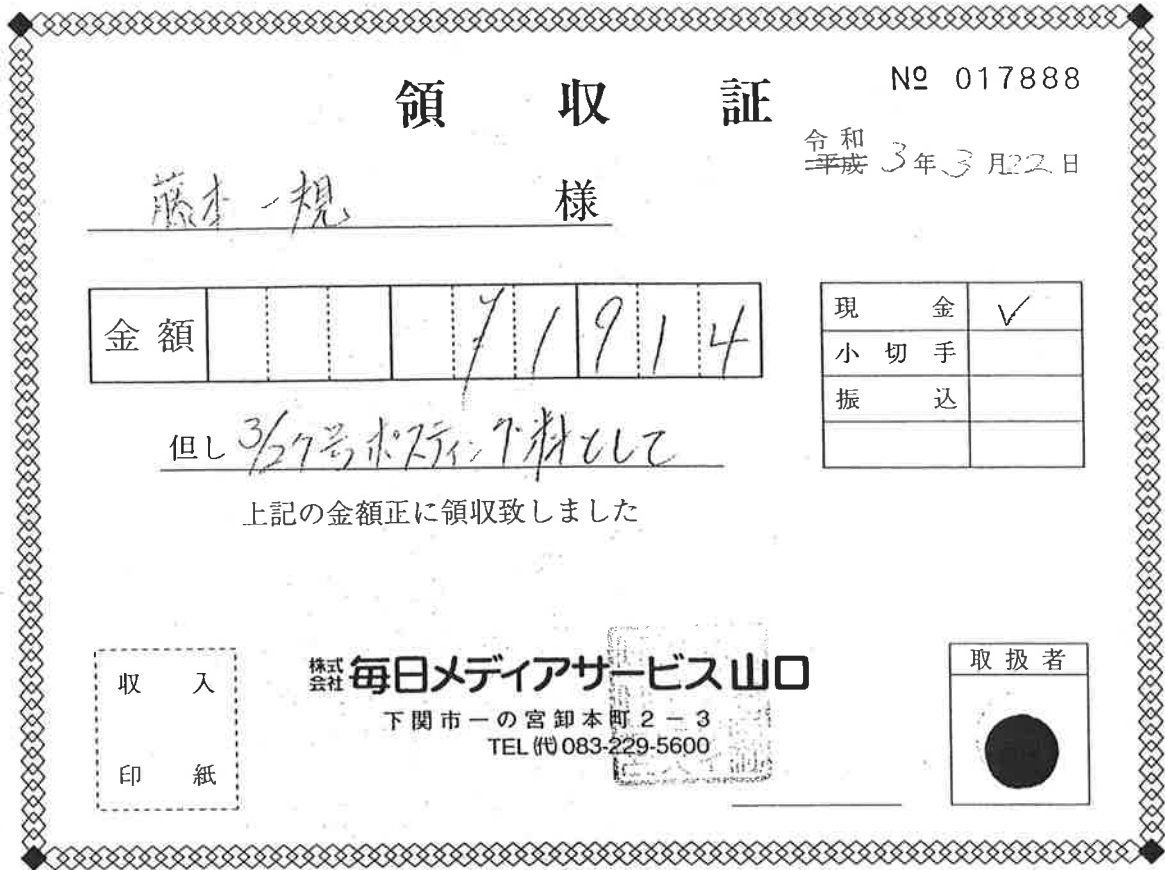 領収証
№ 017888
令和
平成 3年3月22日
藤本一規 様
金額 ¥1914
現金 ✓
小切手
振込
但し 3/27号ポスティング料として
上記の金額正に領収致しました
収入
印紙
株式会社 毎日メディアサービス山口
下関市一の宮卸本町2-3
TEL(代)083-229-5600
取扱者